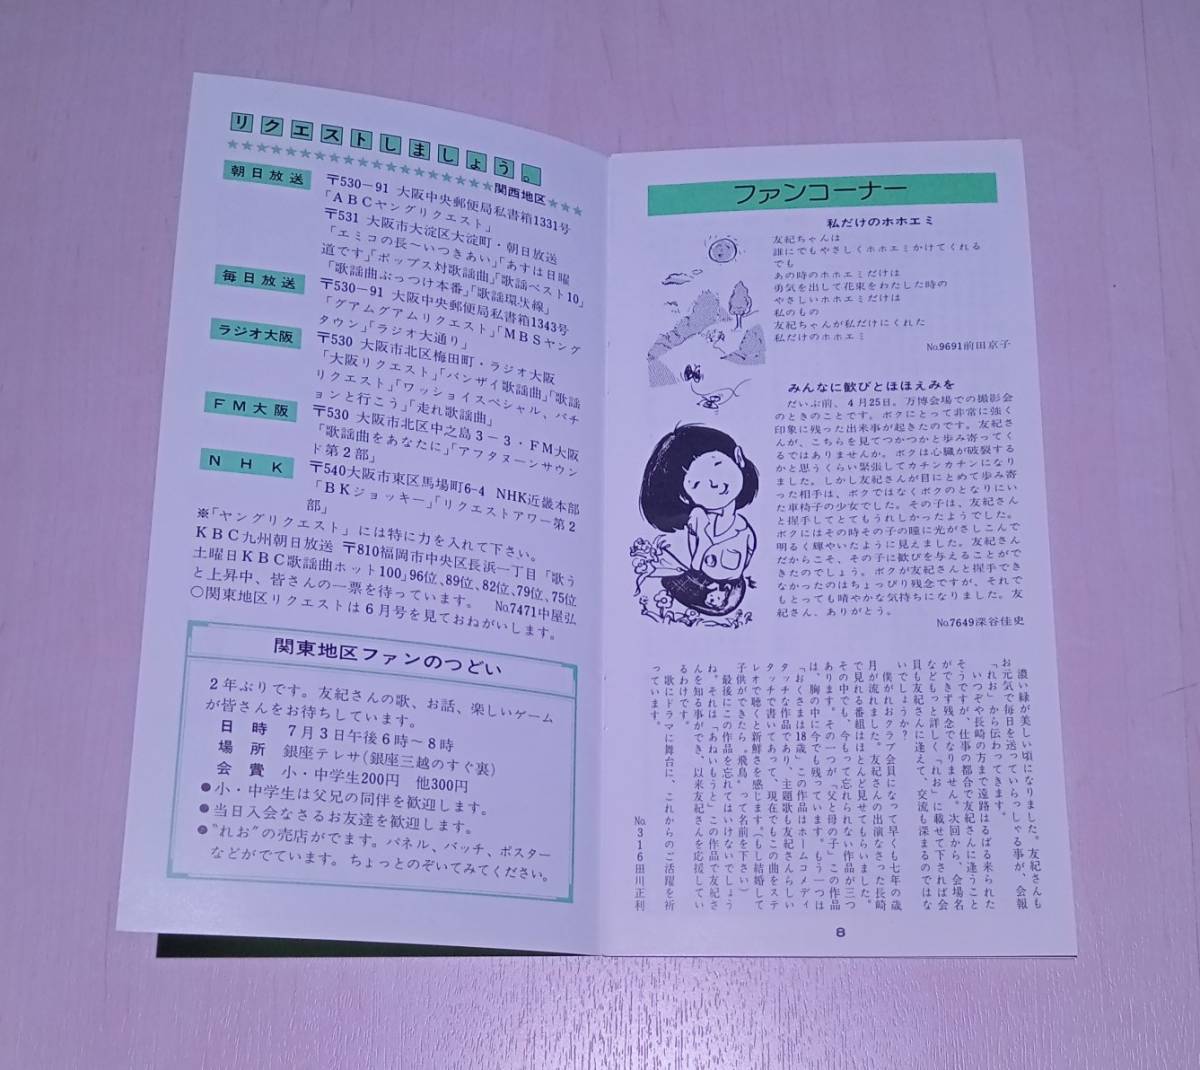 リクエストしましょう。
★★★★★★★★★★★★★★★★★★関西地区★★★
朝日放送
〒530－91 大阪中央郵便局私書箱1331号
「ABCヤングリクエスト」
〒531 大阪市大淀区大淀町・朝日放送
「エミコの長～いつきあい」「あすは日曜
道です」「ポップス対歌謡曲」「歌謡ベスト10」
「歌謡曲ぶっつけ本番」「歌謡環状線」
毎日放送
〒530－91 大阪中央郵便局私書箱1343号
「グアムグアムリクエスト」「MBSヤング
タウン」「ラジオ大通り」
ラジオ大阪
〒530 大阪市北区梅田町・ラジオ大阪
「大阪リクエスト」「バンザイ歌謡曲」「歌謡
リクエスト」「ワッショイスペシャル、パチ
ョンと行こう」「走れ歌謡曲」
FM大阪
〒530 大阪市北区中之島3－3・FM大阪
「歌謡曲をあなたに」「アフタヌーンサウン
ド第2部」
NHK
〒540大阪市東区馬場町6-4 NHK近畿本部
「BKジョッキー」「リクエストアワー第2
部」
※「ヤングリクエスト」には特に力を入れて下さい。
KBC九州朝日放送 〒810福岡市中央区長浜一丁目「歌う
土曜日KBC歌謡曲ホット100」96位、89位、82位、79位、75位
と上昇中、皆さんの一票を待っています。 No.7471中屋弘
○関東地区リクエストは6月号を見ておねがいします。
関東地区ファンのつどい
2年ぶりです。友紀さんの歌、お話、楽しいゲーム
が皆さんをお待ちしています。
日 時 7月3日午後6時～8時
場 所 銀座テレサ(銀座三越のすぐ裏)
会 費 小・中学生200円 他300円
●小・中学生は父兄の同伴を歓迎します。
●当日入会なさるお友達を歓迎します。
●“れお”の売店がでます。パネル、バッチ、ポスター
などがでています。ちょっとのぞいてみてください。
ファンコーナー
私だけのホホエミ
友紀ちゃんは
誰にでもやさしくホホエミかけてくれる
でも
あの時のホホエミだけは
勇気を出して花束をわたした時の
やさしいホホエミだけは
私のもの
友紀ちゃんが私だけにくれた
私だけのホホエミ
No.9691前田京子
みんなに歓びとほほえみを
だいぶ前、4月25日。万博会場での撮影会
のときのことです。ボクにとって非常に強く
印象に残った出来事が起きたのです。友紀さ
んが、こちらを見てつかつかと歩み寄ってく
るではありませんか。ボクは心臓が破裂する
かと思うくらい緊張してカチンカチンになり
ました。しかし友紀さんが目にとめて歩み寄
った相手は、ボクではなくボクのとなりにい
た車椅子の少女でした。その子は、友紀さん
と握手してとてもうれしかったようでした。
ボクにはその時その子の瞳に光がさしこんで
明るく輝やいたように見えました。友紀さん
だからこそ、その子に歓びを与えることがで
きたのでしょう。ボクが友紀さんと握手でき
なかったのはちょっぴり残念ですが、それで
もとっても晴やかな気持ちになりました。友
紀さん、ありがとう。
No.7649深谷佳史
濃い緑が美しい頃になりました。友紀さんも
お元気で毎日を送っていらっしゃる事が、会報
「れお」から伝わってきます。
いつぞや長崎の方まで遠路はるばる来られた
そうですが、仕事の都合で友紀さんに逢うこと
ができず残念でなりません。次回から、会場名
などもっと詳しく「れお」に載せて下されば会
員も友紀さんに逢えて、交流も深まるのではな
いでしょうか？
僕がれおクラブ会員になって早くも七年の歳
月が流れました。友紀さんの出演なさった長崎
で見れる番組はほとんど見せてもらいました。
その中でも、今もって忘れられない作品が三つ
あります。その一つが「父と母の子」この作品
は、胸の中に今でも残っています。もう一つは
「おくさまは18歳」この作品はホームコメディ
タッチな作品であり、主題歌も友紀さんらしい
タッチで書いてあって、現在でもこの曲をステ
レオで聴くと新鮮さを感じます。(もし結婚して
子供ができたら。飛鳥。って名前を下さい)
最後にこの作品を忘れてはいけないでしょう
ね。それは「あねいもうと」この作品で友紀さ
んを知る事ができ、以来友紀さんを応援してい
るわけです。
歌にドラマに舞台に、これからのご活躍を祈
っています。
No.316田川正利
8